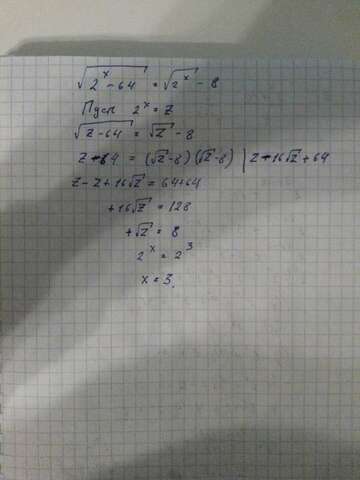 √(2^x - 64) = √(2^x) - 8
Пусть 2^x = z
√(z - 64) = √z - 8
z - 64 = (√z - 8)(√z - 8) | z - 16√z + 64
z - z + 16√z = 64+64
+16√z = 128
+√z = 8
2^x = 2^3
x = 3.